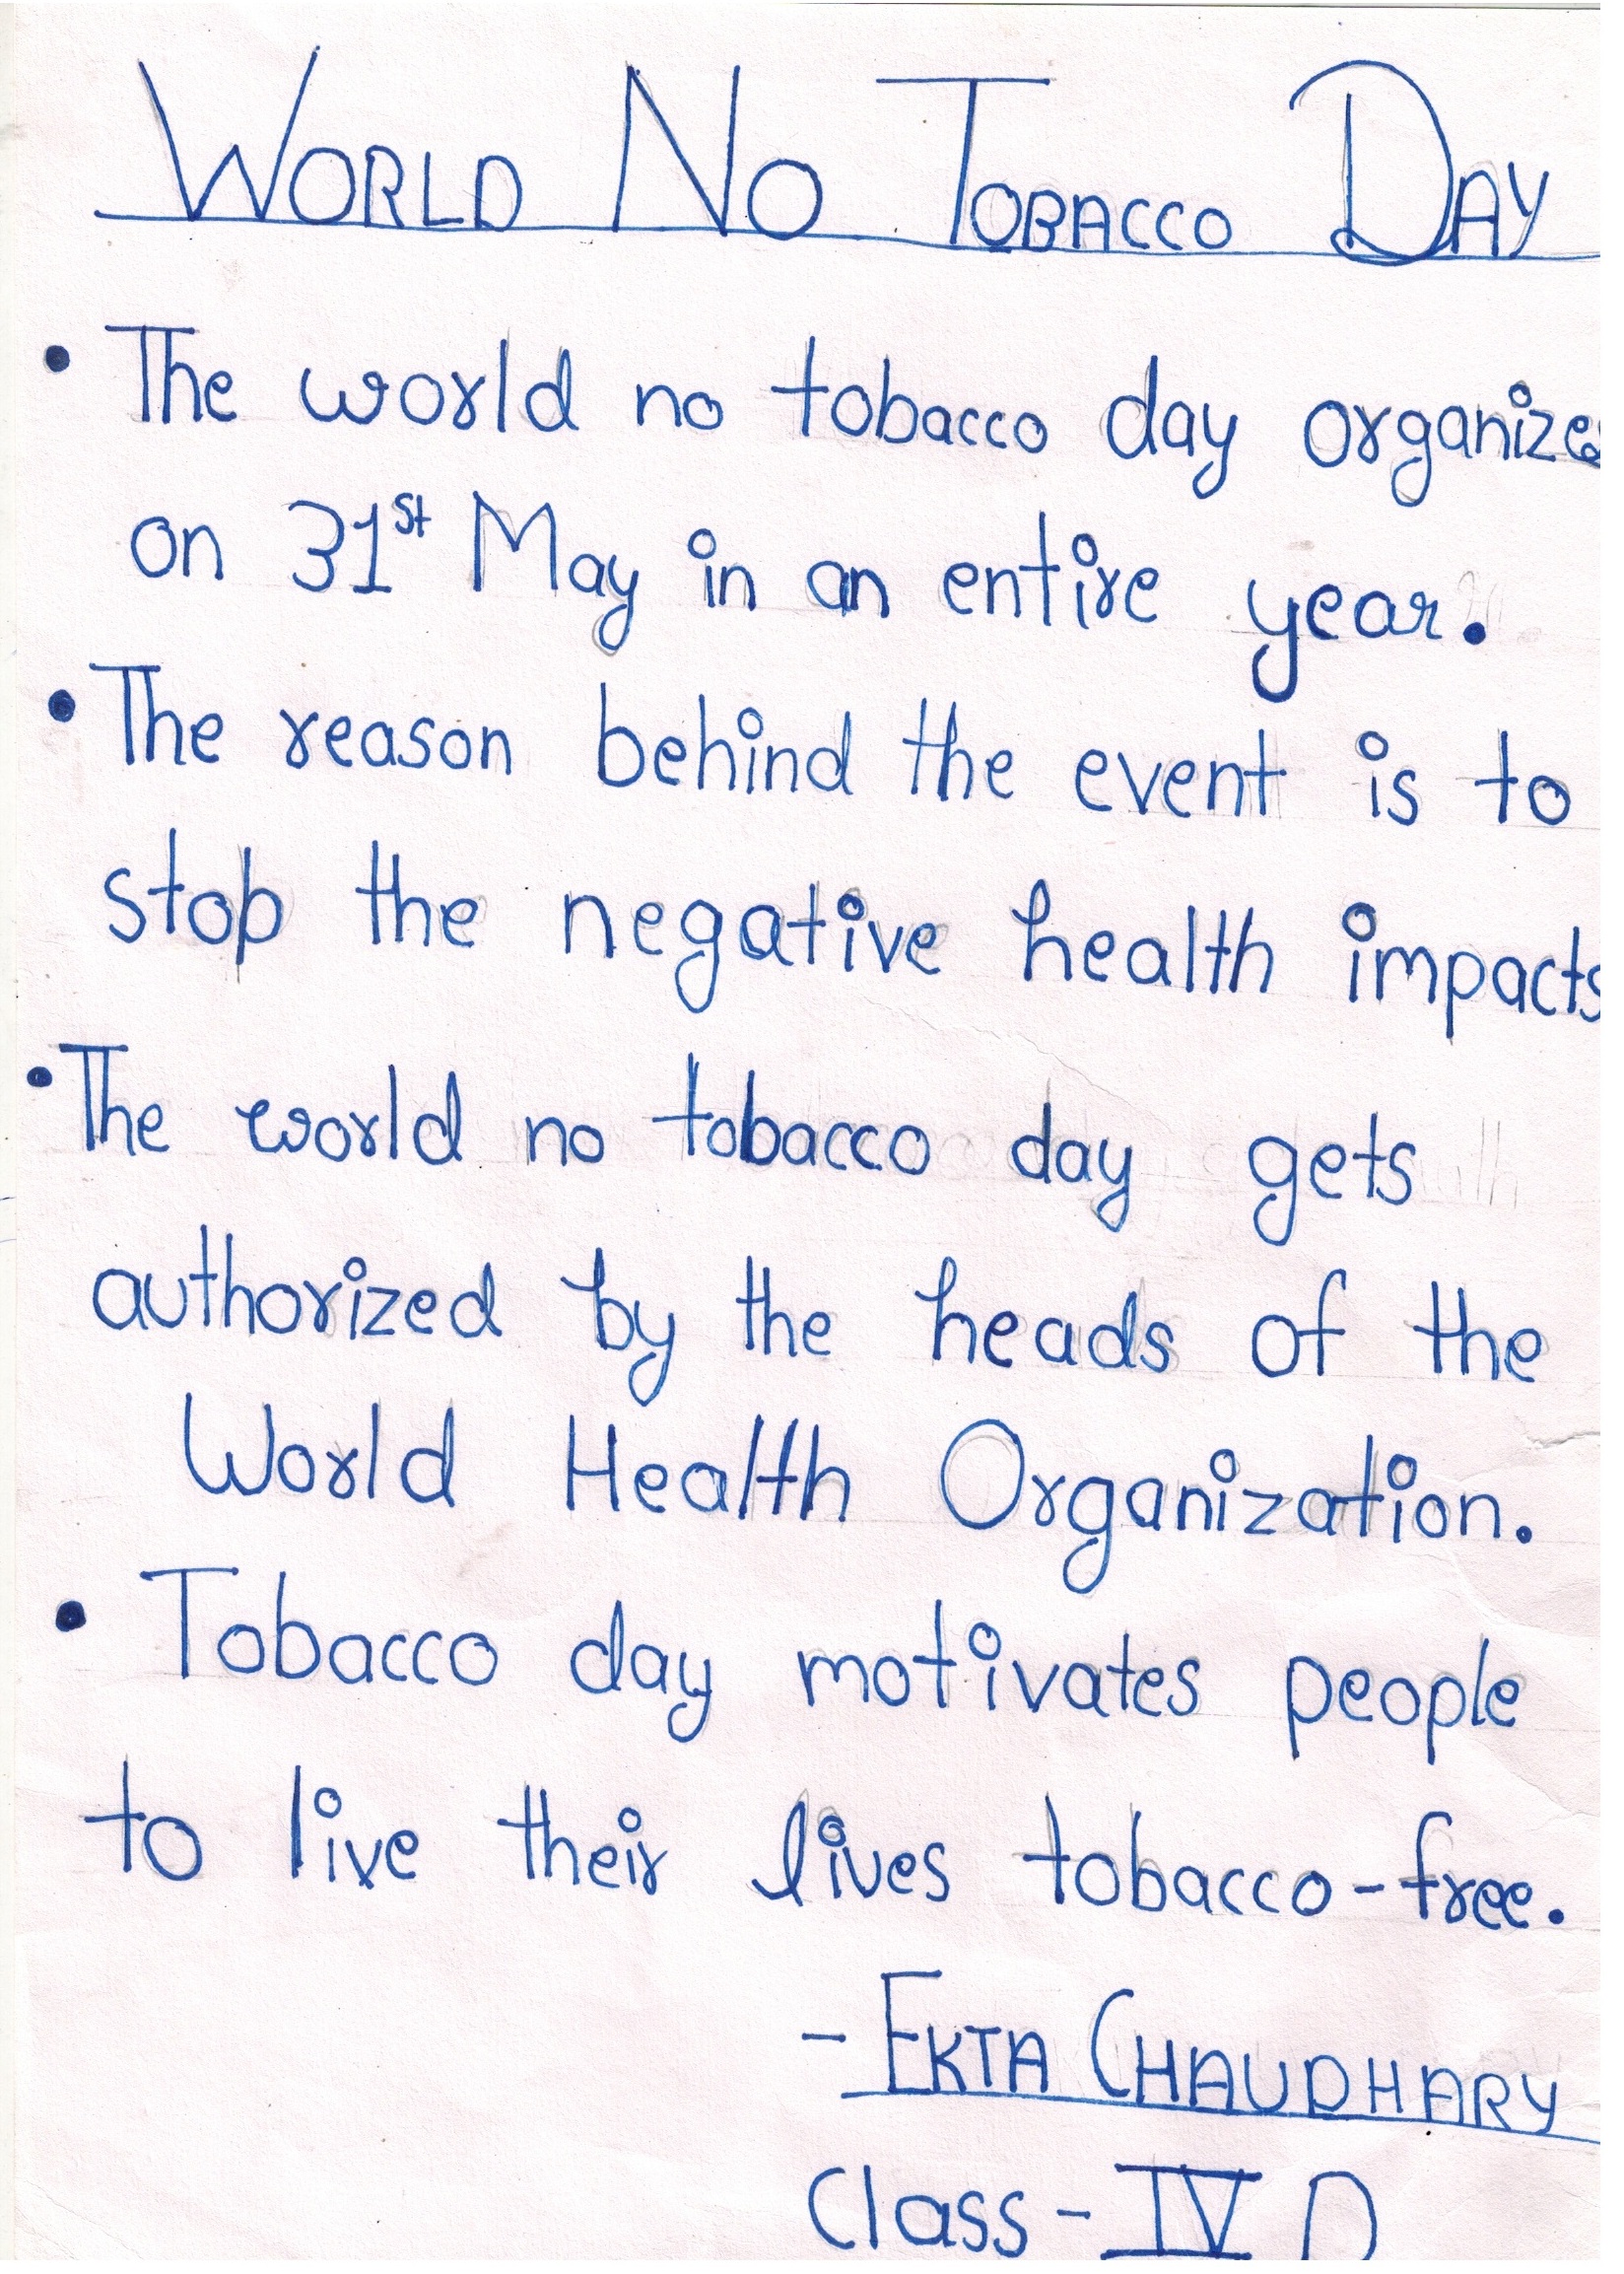 WORLD NO TOBACCO DAY
• The world no tobacco day organizes
on 31st May in an entire year.
• The reason behind the event is to
stop the negative health impacts
• The world no tobacco day gets
authorized by the heads of the
World Health Organization.
• Tobacco day motivates people
to live their lives tobacco-free.
- EKTA CHAUDHARY
Class - IV D